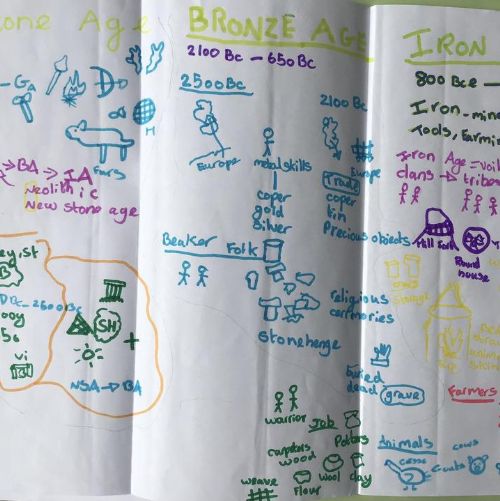 one Age
Ga
H
Furs
→ BA → IA
Neolithic
New stone age
SH
NSA → BA
BRONZE AGE
2100 Bc – 650 Bc
2500 Bc
Europe
metal skills
coper
gold
Silver
2100 Bc
Europe
Trade
coper
tin
Precious objects
Beaker Folk
stonehenge
religious
ceremonies
buried
dead
grave
warrior
Job
Potters
wood
wool
clay
weave
Flour
IRON
800 Bce –
Iron – mine
Tools, Farmin
Iron Age =
clans → tribe
Hill fort
Round
house
storage
Farmers
Animals
cows